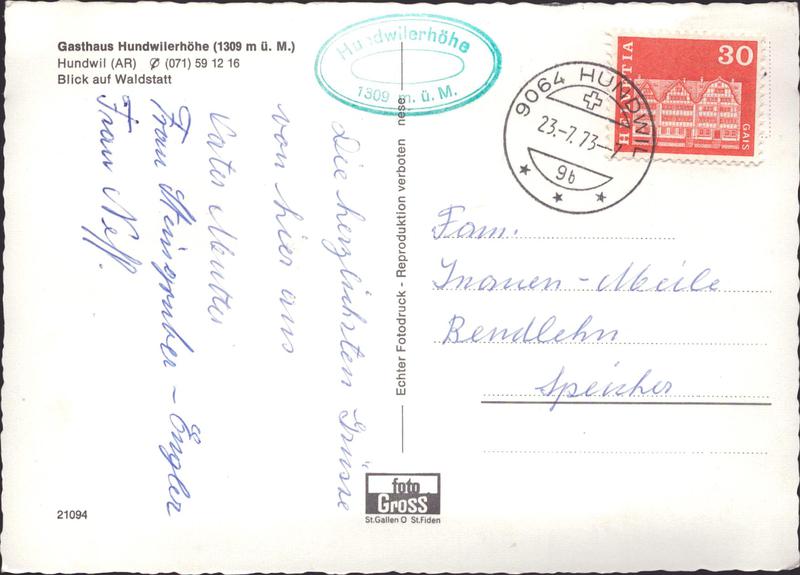 Gasthaus Hundwilerhöhe (1309 m ü. M.)
Hundwil (AR) ✆ (071) 59 12 16
Blick auf Waldstatt
Hundwilerhöhe
1309 m. ü. M.
9064 HUNDWIL
23.-7.73-7
9b
HELVETIA
30
GAIS
Die herzlichsten Grüsse
von hier aus
Vater Mutter
Frau Steingruber - Engler
Frau Neff.
Echter Fotodruck - Reproduktion verboten nese
Fam.
Inauen-Meile
Bendlehn
Speicher
foto
Gross
St.Gallen O St.Fiden
21094